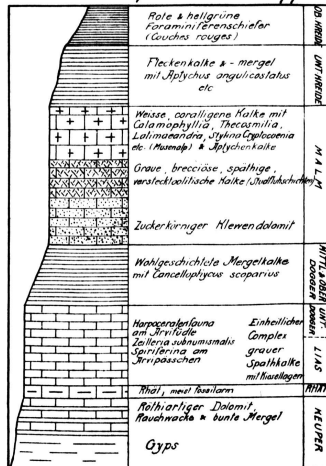 Rote & hellgrüne
Foraminiferenschiefer
(Couches rouges)
OB. KREIDE
Fleckenkalke & - mergel
mit Aptychus angulicostatus
etc
UNT. KREIDE
Weisse, coralligene Kalke mit
Calamophyllia, Thecosmilia,
Latimaeandra, Stylina Cryptocoenia
etc. (Musenalp) & Aptychenkalke
Graue, brecciöse, späthige,
verstecktoolitische Kalke (Studfluhschichten)
Zuckerkörniger Klewendolomit
MALM
Wohlgeschichtete Mergelkalke
mit Cancellophycus scoparius
MITTL & OBER DOGGER
UNT. DOGGER
Harpoceratenfauna
am Arvitüdle
Zeilleria subnumismalis
Spiriferina am
Arvipässchen
Einheitlicher
Complex
grauer
Spathkalke
mit Kiesellagen
LIAS
Rhät, meist fossilarm
RHÄT
Röthiartiger Dolomit,
Rauchwacke & bunte Mergel
Gyps
KEUPER